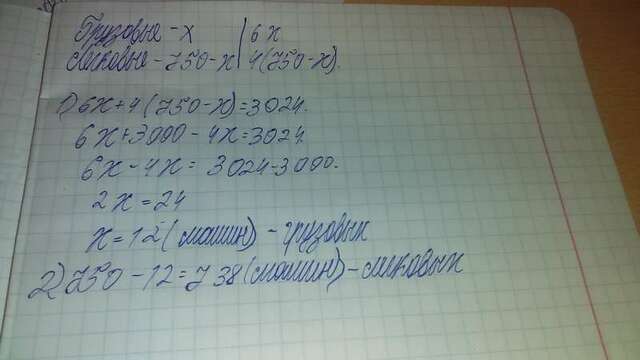 Грузовые - х | 6х
легковые - 750-х | 4(750-х).
1) 6х+4(750-х)=3024.
6х+3000-4х=3024.
6х-4х= 3024-3000.
2х=24
х=12(машин) - грузовых
2) 750-12=738(машин)-легковых